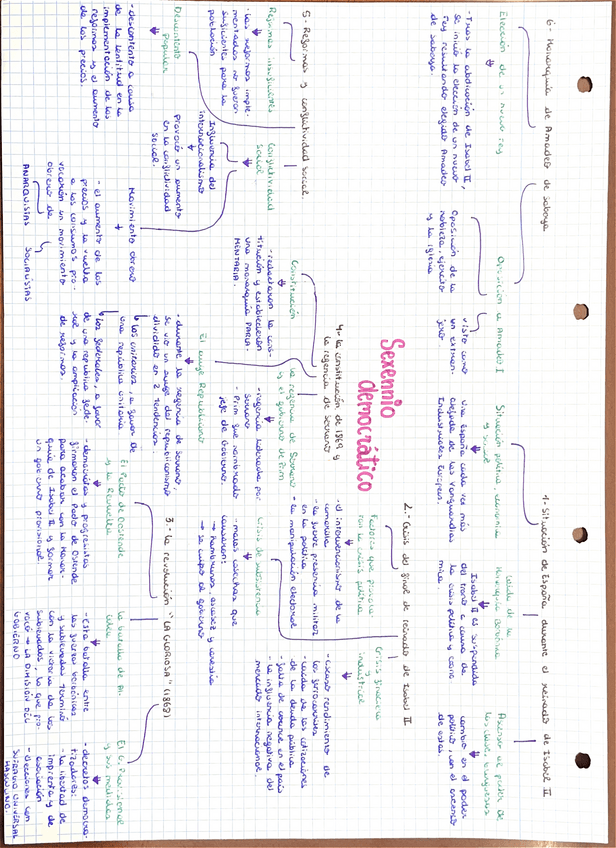 Sexennio
democrático
1.- Situación de España durante el reinado de Isabel II
Situación política, economía
y social
Una España cada vez más
alejada de las vanguardias
industriales Europeas.
Caída de la
Monarquía Borbónica
Isabel II es suspendida
del trono a causa de
la crisis política y econó
mica.
Ascenso al poder de
las clases burguesas
cambio en el poder
político, con el ascenso
de estas.
2.- Crisis del final de reinado de Isabel II
Factores que provocaron
la crisis política
- el intervencionismo de la
camarilla
- la gran presencia militar
en la política
- la manipulación electoral
Crisis financiera
e industrial
- escaso rendimiento de
los ferrocarriles
- caída de las cotizaciones
de la deuda pública
- falta de carbón en el país
- la influencia negativa del
mercado internacional.
Crisis de subsistencia
- malas cosechas que
causaron:
→ hambrunas, escasez y carestía
→ se culpó al gobierno
3.- La revolución "LA GLORIOSA" (1868)
El Pacto de Ostende
y la Revuelta
- demócratas y progresistas
firmaron el Pacto de Ostende
para acabar con la Monar-
quía de Isabel II y formar
un gobierno provisional.
La batalla de Al-
colea
- Esta batalla entre
las fuerzas borbónicas
y sublevadas terminó
con la victoria de los
sublevados, lo que pro-
vocó → LA DIMISIÓN DEL
GOBIERNO
El G. Provisional
y sus medidas
- decretos democra-
tizadores:
- la libertad de
imprenta y de
asociación
- elecciones con
SUFRAGIO UNIVERSAL
MASCULINO.
4.- La constitución de 1869 y
la regencia de Serrano
Constitución
- redactaron la cons-
titución y establecieron
una monarquía PARLA-
MENTARIA.
La regencia de Serrano
y el gobierno de Prim
- regencia liderada por
Serrano
- Prim fue nombrado
jefe de Gobierno.
El auge Republicano
- durante la regencia de Serrano,
se vio un auge del republicanismo
dividido en 2 tendencias.
los unitarios, a favor de
una república unitaria
los federales a favor
de una república fede-
ral y la ampliación
de reformas.
5.- Reformas y conflictividad social.
Reformas insuficientes
- las reformas imple-
mentadas no fueron
suficientes para la
población
Descontento
popular
- descontento a causa
de la lentitud en la
implementación de las
reformas y el aumento
de los precios.
Conflictividad
social
Influencia del
internacionalismo
provocó un aumento
en la conflictividad
social.
Movimiento obrero
- el aumento de los
precios y la vuelta
a los consumos pro-
vocarón un movimiento
obrero de
ANARQUISTAS
SOCIALISTAS
6.- Monarquía de Amadeo de Saboya
Elección de un nuevo rey
- Tras la abdicación de Isabel II,
se inició la elección de un nuevo
rey resultando elegido Amadeo
de Saboya.
Oposición a Amadeo I
Oposición de la
nobleza ejército
y la iglesia
visto como
un extran-
jero.